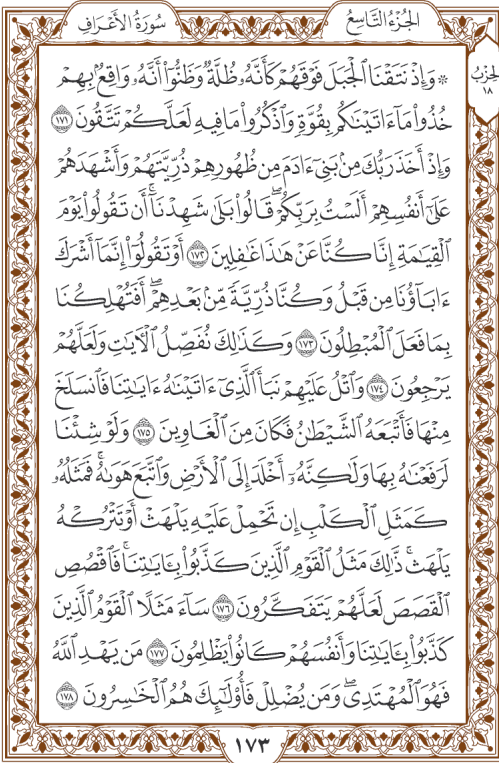 الجُزْءُ التَّاسِعُ
سُورَةُ الأَعْرَافِ
لحِزْبُ
١٨
۞ وَإِذْ نَتَقْنَا ٱلْجَبَلَ فَوْقَهُمْ كَأَنَّهُۥ ظُلَّةٌ وَظَنُّوٓا۟ أَنَّهُۥ وَاقِعٌۢ بِهِمْ
خُذُوا۟ مَآ ءَاتَيْنَٰكُم بِقُوَّةٍ وَٱذْكُرُوا۟ مَا فِيهِ لَعَلَّكُمْ تَتَّقُونَ ١٧١
وَإِذْ أَخَذَ رَبُّكَ مِنۢ بَنِىٓ ءَادَمَ مِن ظُهُورِهِمْ ذُرِّيَّتَهُمْ وَأَشْهَدَهُمْ
عَلَىٰٓ أَنفُسِهِمْ أَلَسْتُ بِرَبِّكُمْ ۖ قَالُوا۟ بَلَىٰ شَهِدْنَآ ۚ أَن تَقُولُوا۟ يَوْمَ
ٱلْقِيَٰمَةِ إِنَّا كُنَّا عَنْ هَٰذَا غَٰفِلِينَ ١٧٢ أَوْ تَقُولُوٓا۟ إِنَّمَآ أَشْرَكَ
ءَابَآؤُنَا مِن قَبْلُ وَكُنَّا ذُرِّيَّةً مِّنۢ بَعْدِهِمْ ۖ أَفَتُهْلِكُنَا
بِمَا فَعَلَ ٱلْمُبْطِلُونَ ١٧٣ وَكَذَٰلِكَ نُفَصِّلُ ٱلْءَايَٰتِ وَلَعَلَّهُمْ
يَرْجِعُونَ ١٧٤ وَٱتْلُ عَلَيْهِمْ نَبَأَ ٱلَّذِىٓ ءَاتَيْنَٰهُ ءَايَٰتِنَا فَٱنسَلَخَ
مِنْهَا فَأَتْبَعَهُ ٱلشَّيْطَٰنُ فَكَانَ مِنَ ٱلْغَاوِينَ ١٧٥ وَلَوْ شِئْنَا
لَرَفَعْنَٰهُ بِهَا وَلَٰكِنَّهُۥٓ أَخْلَدَ إِلَى ٱلْأَرْضِ وَٱتَّبَعَ هَوَىٰهُ ۚ فَمَثَلُهُۥ
كَمَثَلِ ٱلْكَلْبِ إِن تَحْمِلْ عَلَيْهِ يَلْهَثْ أَوْ تَتْرُكْهُ
يَلْهَث ۚ ذَّٰلِكَ مَثَلُ ٱلْقَوْمِ ٱلَّذِينَ كَذَّبُوا۟ بِـَٔايَٰتِنَا ۚ فَٱقْصُصِ
ٱلْقَصَصَ لَعَلَّهُمْ يَتَفَكَّرُونَ ١٧٦ سَآءَ مَثَلًا ٱلْقَوْمُ ٱلَّذِينَ
كَذَّبُوا۟ بِـَٔايَٰتِنَا وَأَنفُسَهُمْ كَانُوا۟ يَظْلِمُونَ ١٧٧ مَن يَهْدِ ٱللَّهُ
فَهُوَ ٱلْمُهْتَدِى ۖ وَمَن يُضْلِلْ فَأُو۟لَٰٓئِكَ هُمُ ٱلْخَٰسِرُونَ ١٧٨
١٧٣